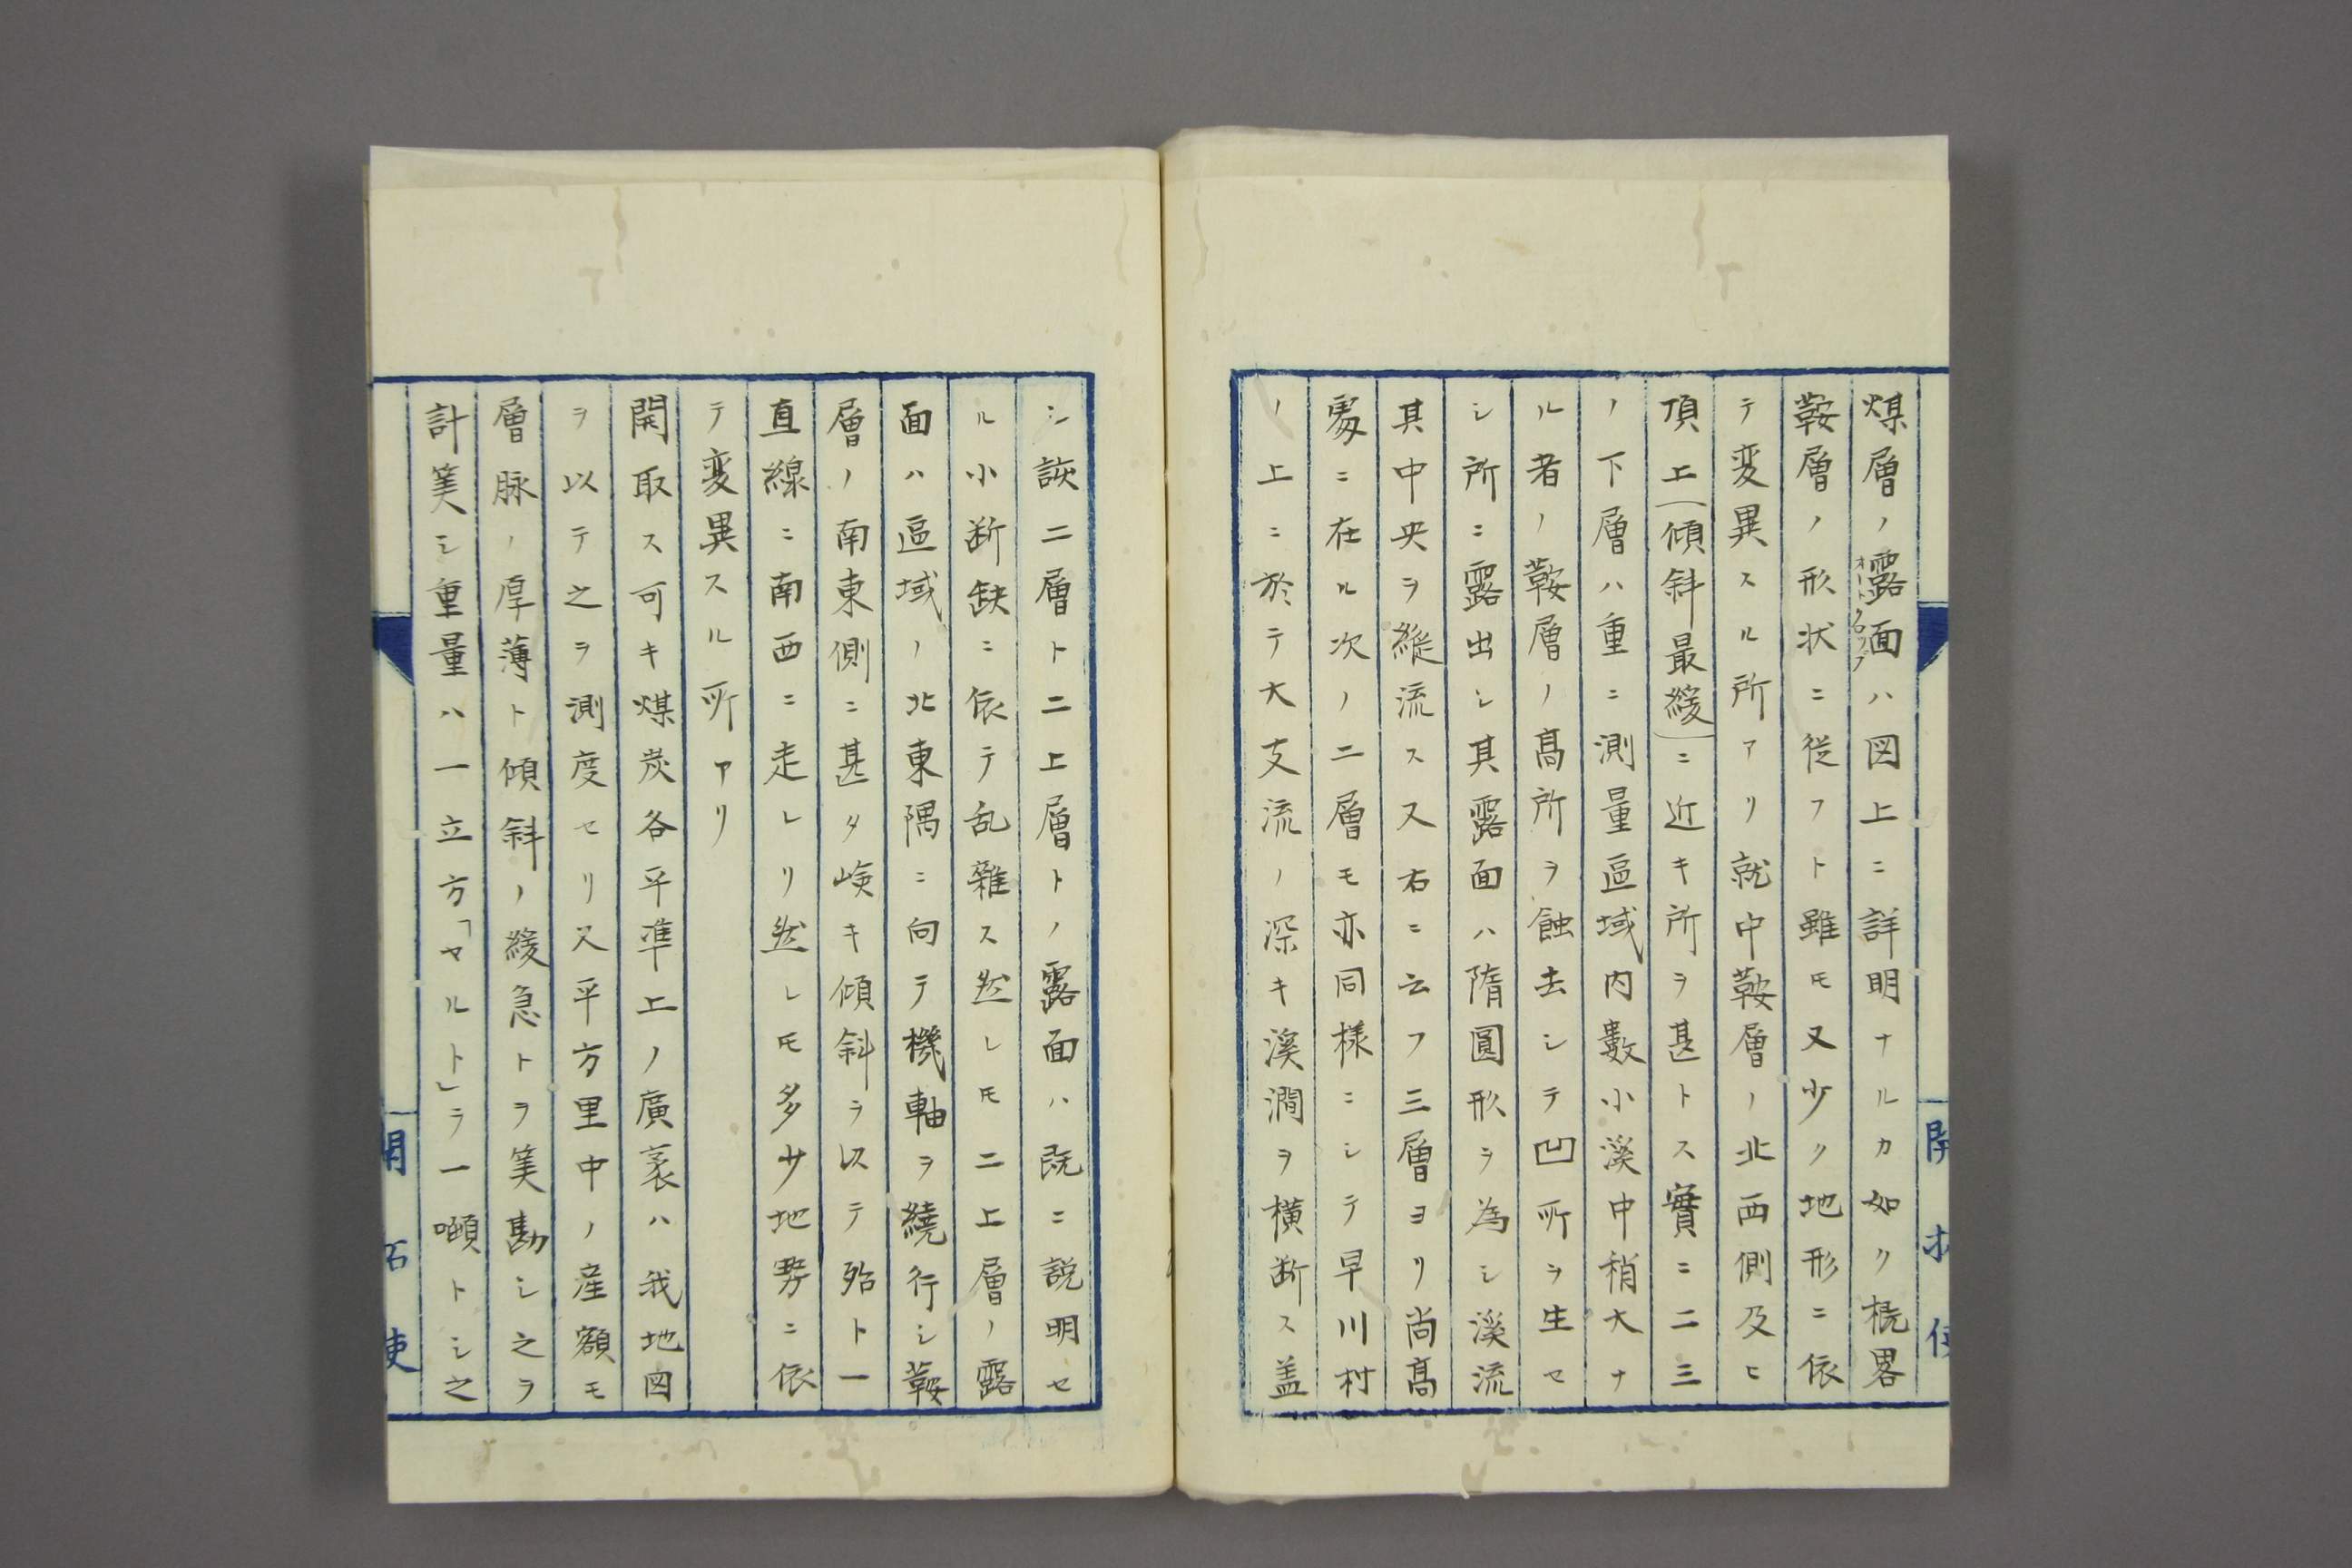 煤層ノ露面ハ図上ニ詳明ナルカ如ク概畧
オートクロップ
鞍層ノ形状ニ従フト雖モ又少ク地形ニ依
テ変異スル所アリ就中鞍層ノ北西側及ヒ
頂上(傾斜最緩)ニ近キ所ヲ甚トス實ニ二三
ノ下層ハ重ニ測量區域内數小溪中稍大ナ
ル者ノ鞍層ノ髙所ヲ蝕去シテ凹所ヲ生セ
シ所ニ露出シ其露面ハ隋圓形ヲ為シ溪流
其中央ヲ縦流ス又右ニ云フ三層ヨリ尚髙
處ニ在ル次ノ二層モ亦同様ニシテ早川村
ノ上ニ於テ大支流ノ深キ溪澗ヲ横断ス盖
開拓使
シ該二層ト二上層トノ露面ハ既ニ説明セ
ル小断缺ニ依テ乱雜ス然レモ二上層ノ露
面ハ區域ノ北東隅ニ向テ機軸ヲ繞行シ鞍
層ノ南東側ニ甚タ峻キ傾斜ヲ以テ殆ト一
直線ニ南西ニ走レリ然レモ多少地勢ニ依
テ変異スル所アリ
開取ス可キ煤炭各平準上ノ廣袤ハ我地図
ヲ以テ之ヲ測度セリ又平方里中ノ産額モ
層脉ノ厚薄ト傾斜ノ緩急トヲ筭勘シ之ヲ
計筭シ重量ハ一立方「ヤルト」ヲ一噸トシ之
開拓使